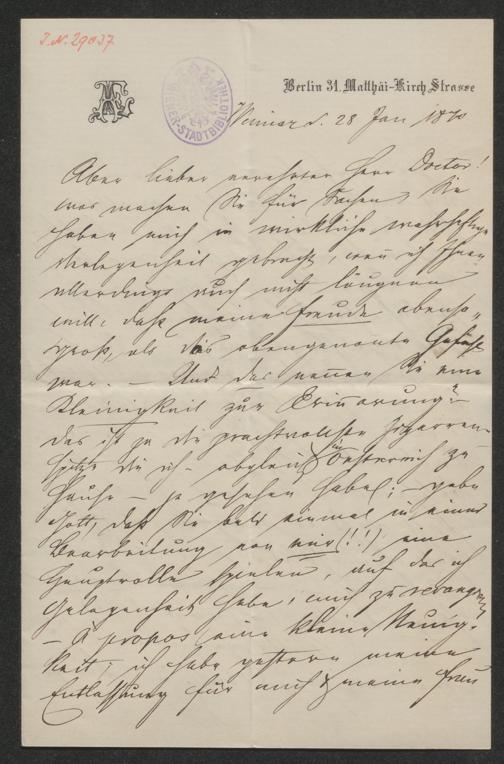 J. N. 29037
WIENER-STADTBIBLIOTHEK
Berlin 31. Matthäi-Kirch Strasse
Weimar d. 28 Jan 1870
Aber lieber verehrter Herr Doctor!
was machen Sie für Sachen, Sie
haben mich in wirkliche wahrhaftige
Verlegenheit gebracht, wenn ich Ihnen
allerdings auch nicht läugnen
will, daß meine Freude ebenso
groß, als das obengenante Gefühl
war. — Und das nennen Sie eine
Kleinigkeit zur Erinnerung? —
das ist ja die prachtvollste Zigarren-
spitze die ich — obgleich in Oesterreich zu
Hause — je gesehen habe; — gebe
Gott, daß Sie bald einmal in einer
Bearbeitung von mir (!!) eine
Hauptrolle spielen, auf das ich
Gelegenheit habe, mich zu revangiren
— à propos eine kleine Neuig-
keit; ich habe gestern meine
Entlassung für mich & meine Frau